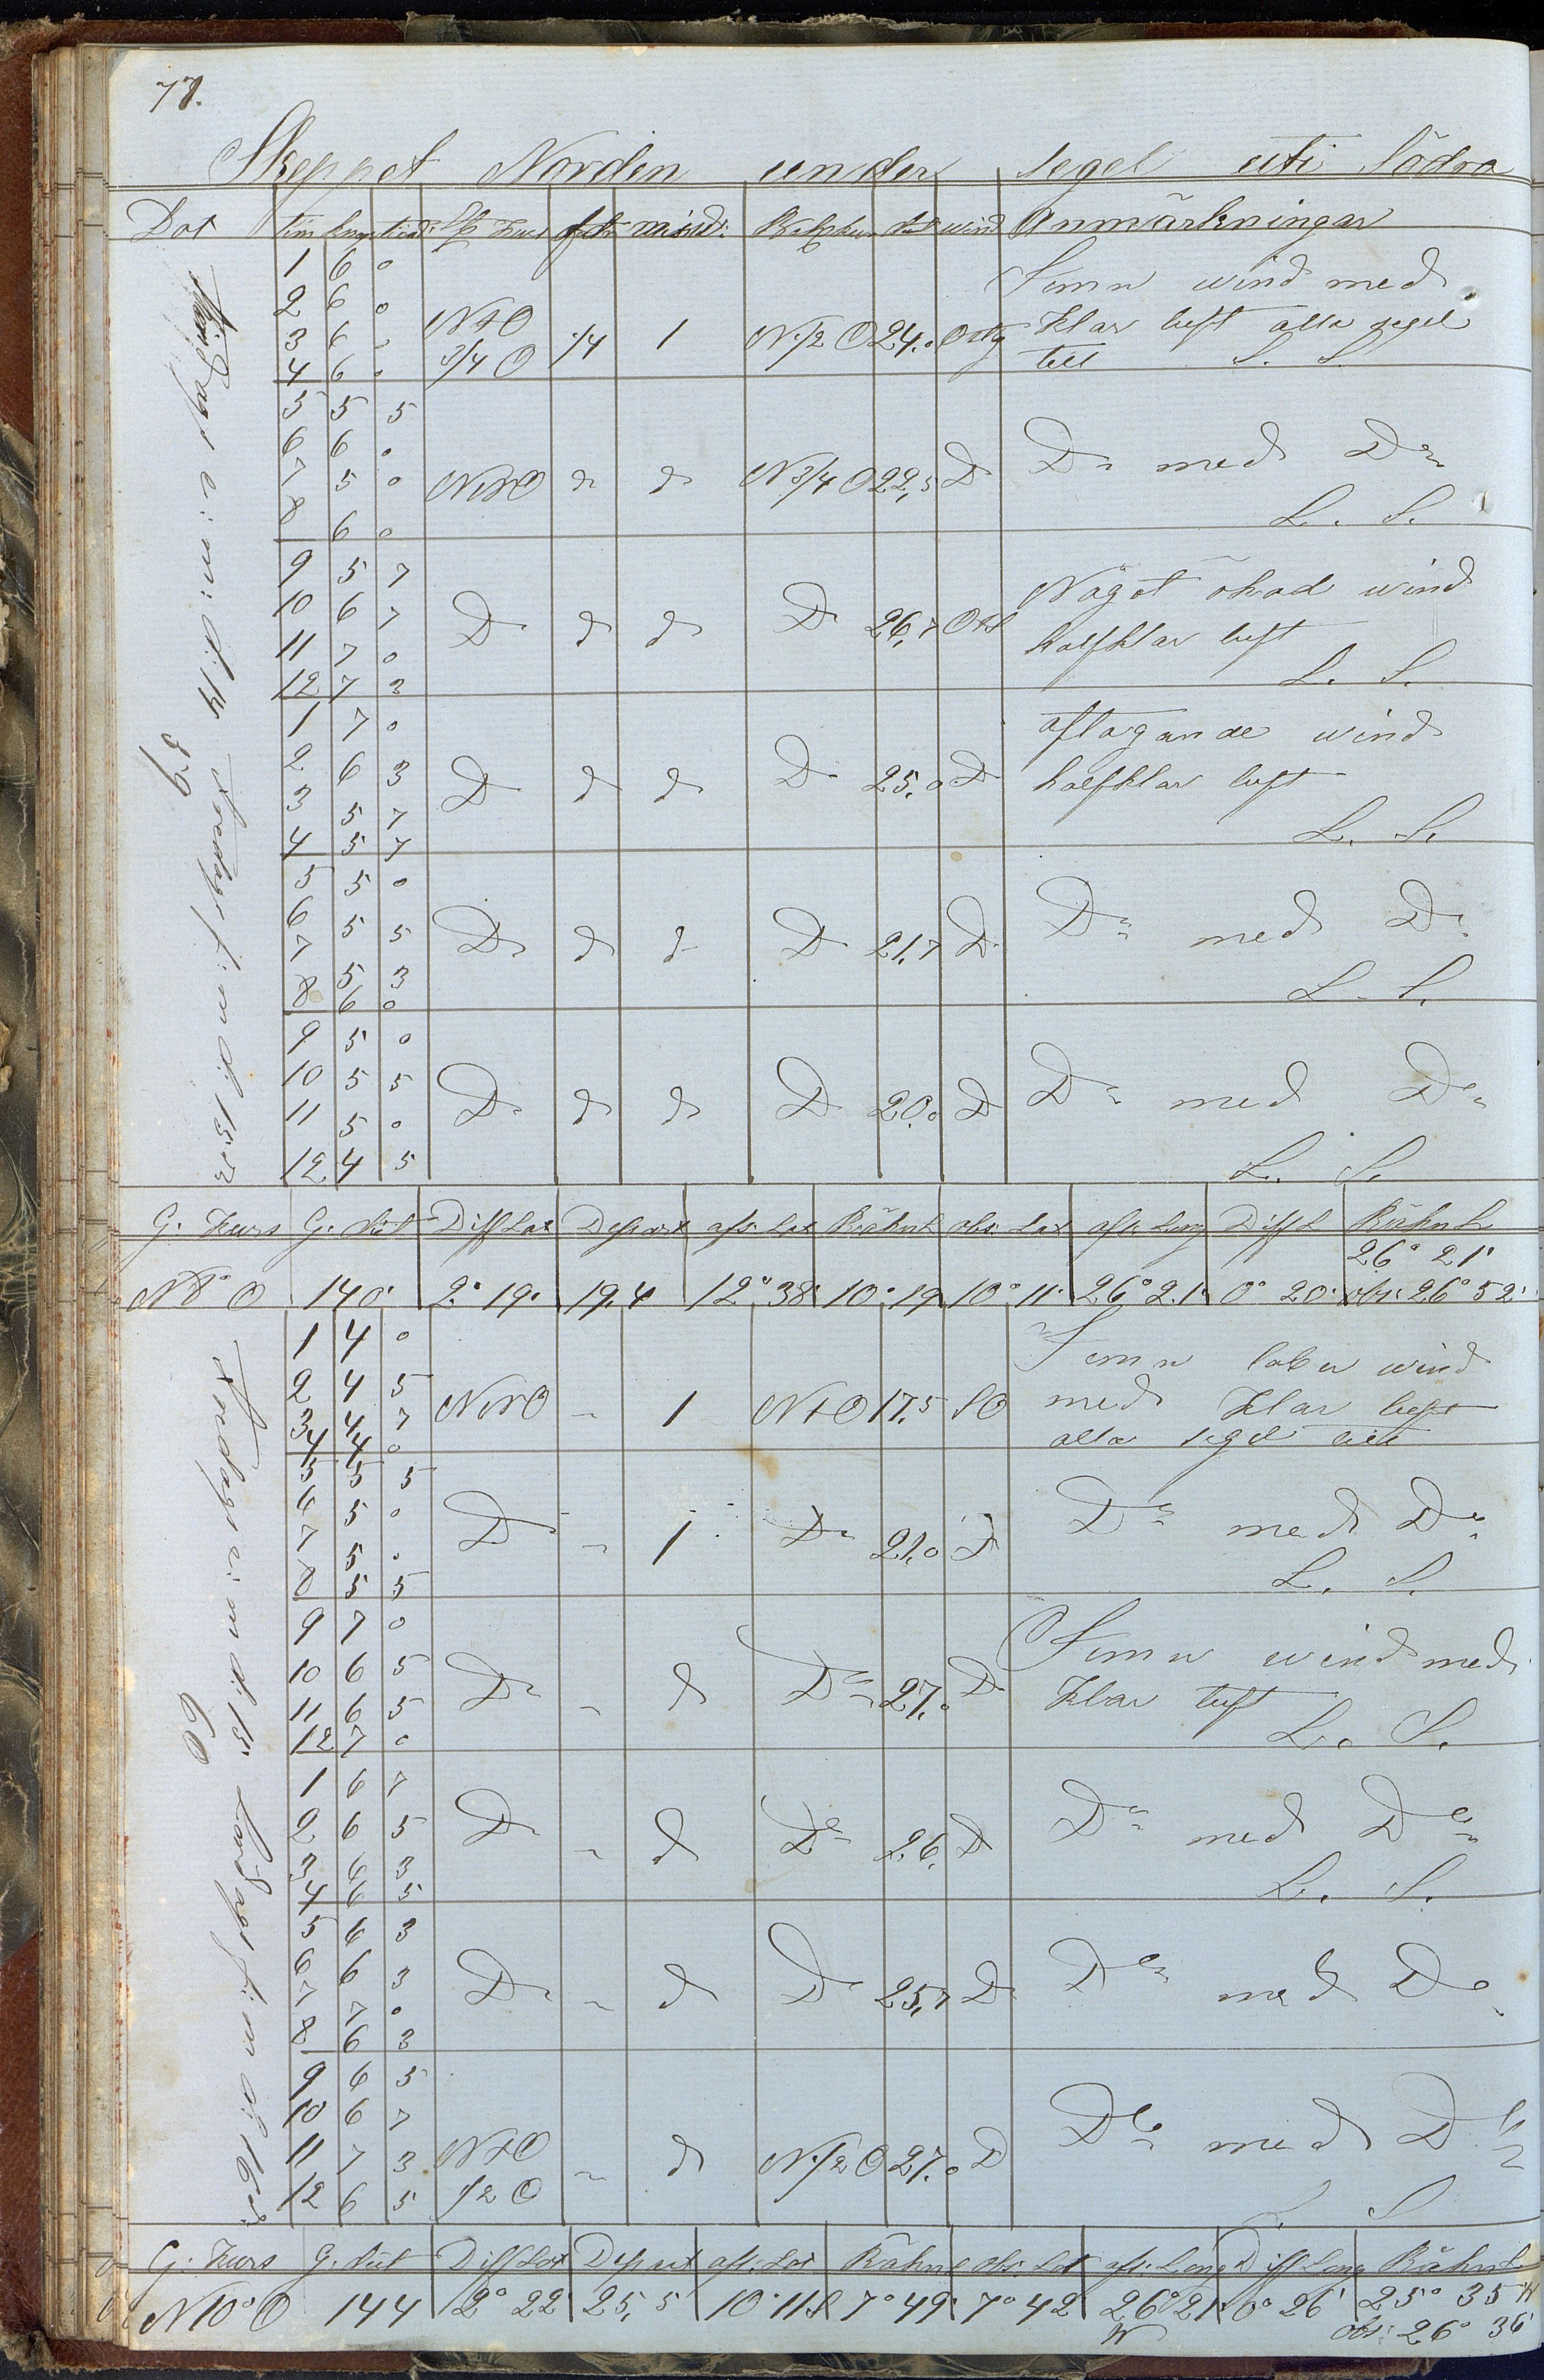 77.
Skeppet Norden under segel uti Södra
Dat tim knop Kurs afdr misv: wind Anmärkningar
1 6 0
2 6 0
3 6 0
4 6 0
NtO 3/4 O 1/4 1 N 1/2 O 24.0 Ostlig
Jemn wind med
klar luft alla segel
till L. S.
5 5 5
6 6 0
7 5 0
8 6 0
NNO d d N 3/4 O 22,5 D
Do med Do
L. S.
9 5 7
10 6 7
11 7 0
12 7 3
D d d D 26,7 OtS
Något ökad wind
halfklar luft
L. S.
1 7 0
2 6 3
3 5 7
4 5 7
D d d D 25,0 D
aftagande wind
halfklar luft
L. S.
5 5 0
6 5 5
7 5 3
8 6 0
D d d D 21,7 D
Do med Do
L. S.
9 5 0
10 5 5
11 5 0
12 4 5
D d d D 20.0 D
Do med Do
L. S.
Måndag e: m: d: 14 Torsdag f: m d: 15:
59
G: Kurs G. dist Diff Lat Depart afs: Lat Räknd obs: Lat afs: Long Diff L Räknd
26° 21'
N 8° O 140 2° 19' 19.4 12° 38' 10° 19 10° 11' 26° 21' 0° 20' obs: 26° 52'
1 4 0
2 4 5
3 4 7
4 4 0
NNO 1 NtO 17.5 SO
Jemn laber wind
med klar luft
alla segel till
5 5 5
6 5 0
7 5 0
8 5 5
D 1 Do 21.0 D
Do med Do
L. S.
9 7 0
10 6 5
11 6 5
12 7 0
D d Do 27.0 D
Jemn wind med
klar luft
L. S.
1 6 7
2 6 5
3 6 3
4 6 5
D d Do 26. D
Do med Do
L. S.
5 6 3
6 6 3
7 7 0
8 6 3
D d D 25,7 D
Do med Do
9 6 5
10 6 7
11 7 3
12 6 5
NtO 1/2 O d N 1/2 O 27.0 D
Do med Do
L. S.
60
G. Kurs G. dist Diff Lat Depart afs: Lat Räknd obs: Lat afs: Long Diff Long Räknd
N 10° O 144 2° 22' 25,5 10° 11 S 7° 49' 7° 42 26° 21' W 0° 26' 25° 35 W
obs: 26° 36'